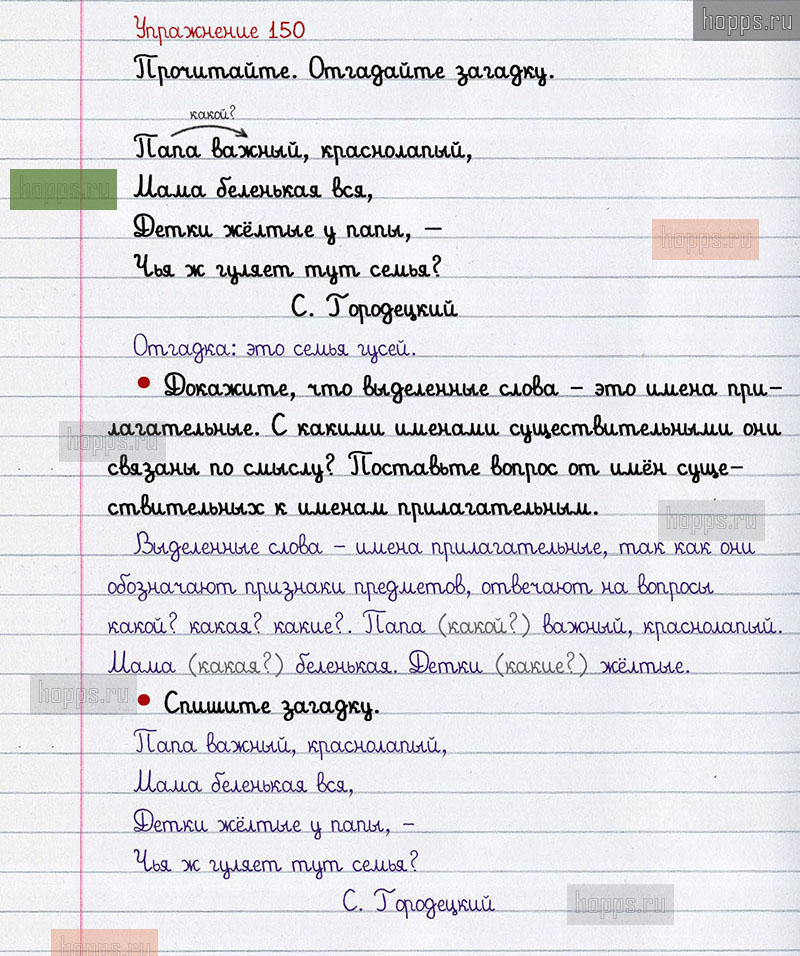 hopps.ru
Упражнение 150
Прочитайте. Отгадайте загадку.
какой?
Папа важный, краснолапый,
hopps.ru
Мама беленькая вся,
Детки жёлтые у папы, –
hopps.ru
Чья ж гуляет тут семья?
С. Городецкий
Отгадка: это семья гусей.
• Докажите, что выделенные слова – это имена при-
лагательные. С какими именами существительными они
hopps.ru
связаны по смыслу? Поставьте вопрос от имён суще-
ствительных к именам прилагательным.
hopps.ru
Выделенные слова – имена прилагательные, так как они
обозначают признаки предметов, отвечают на вопросы
какой? какая? какие?. Папа (какой?) важный, краснолапый.
Мама (какая?) беленькая. Детки (какие?) жёлтые.
hopps.ru
• Спишите загадку.
Папа важный, краснолапый,
Мама беленькая вся,
Детки жёлтые у папы, –
Чья ж гуляет тут семья?
С. Городецкий
hopps.ru
hopps.ru